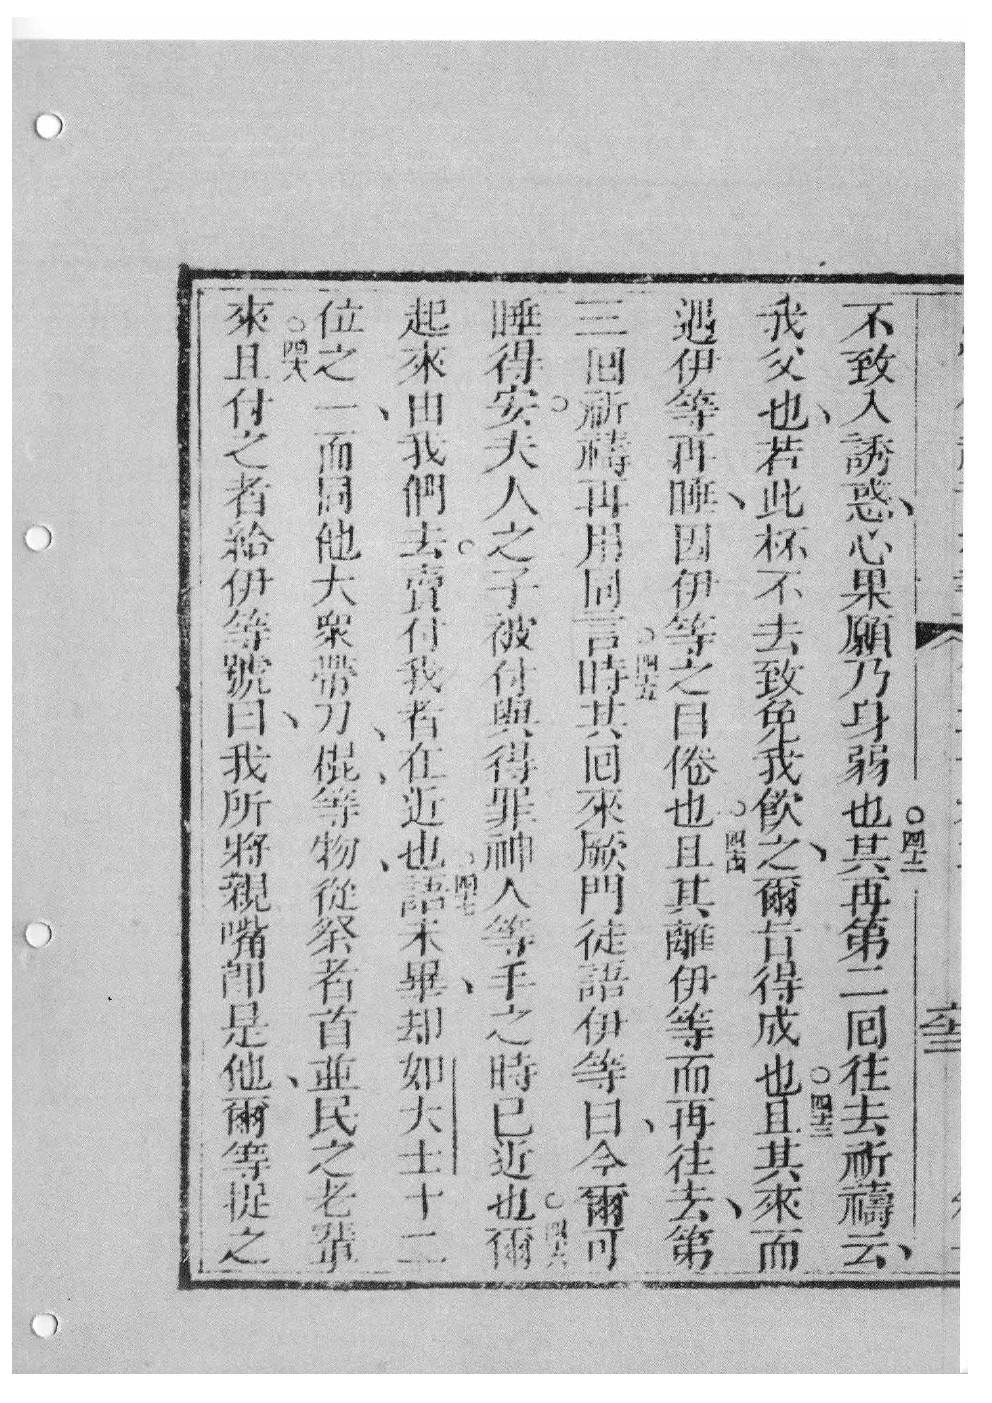 不致入誘惑、心果願乃身弱也○四十二其再第二囘往去祈禱云、
我父也、若此杯不去致免我飲之、爾旨得成也○四十三且其來而
遇伊等再睡、因伊等之目倦也○四十四且其離伊等而再往去、第
三囘祈禱再用同言○四十五時其囘來厥門徒語伊等曰、今爾可
睡得安○夫人之子被付與得罪神人等手之時已近也○四十六爾
起來由我們去○賣付我者在近也○四十七語未畢、却如大士十二
位之一、而同他大衆帶刀、棍、等物、從祭者首並民之老輩
來○四十八且付之者給伊等號曰、我所將親嘴卽是他、爾等捉之